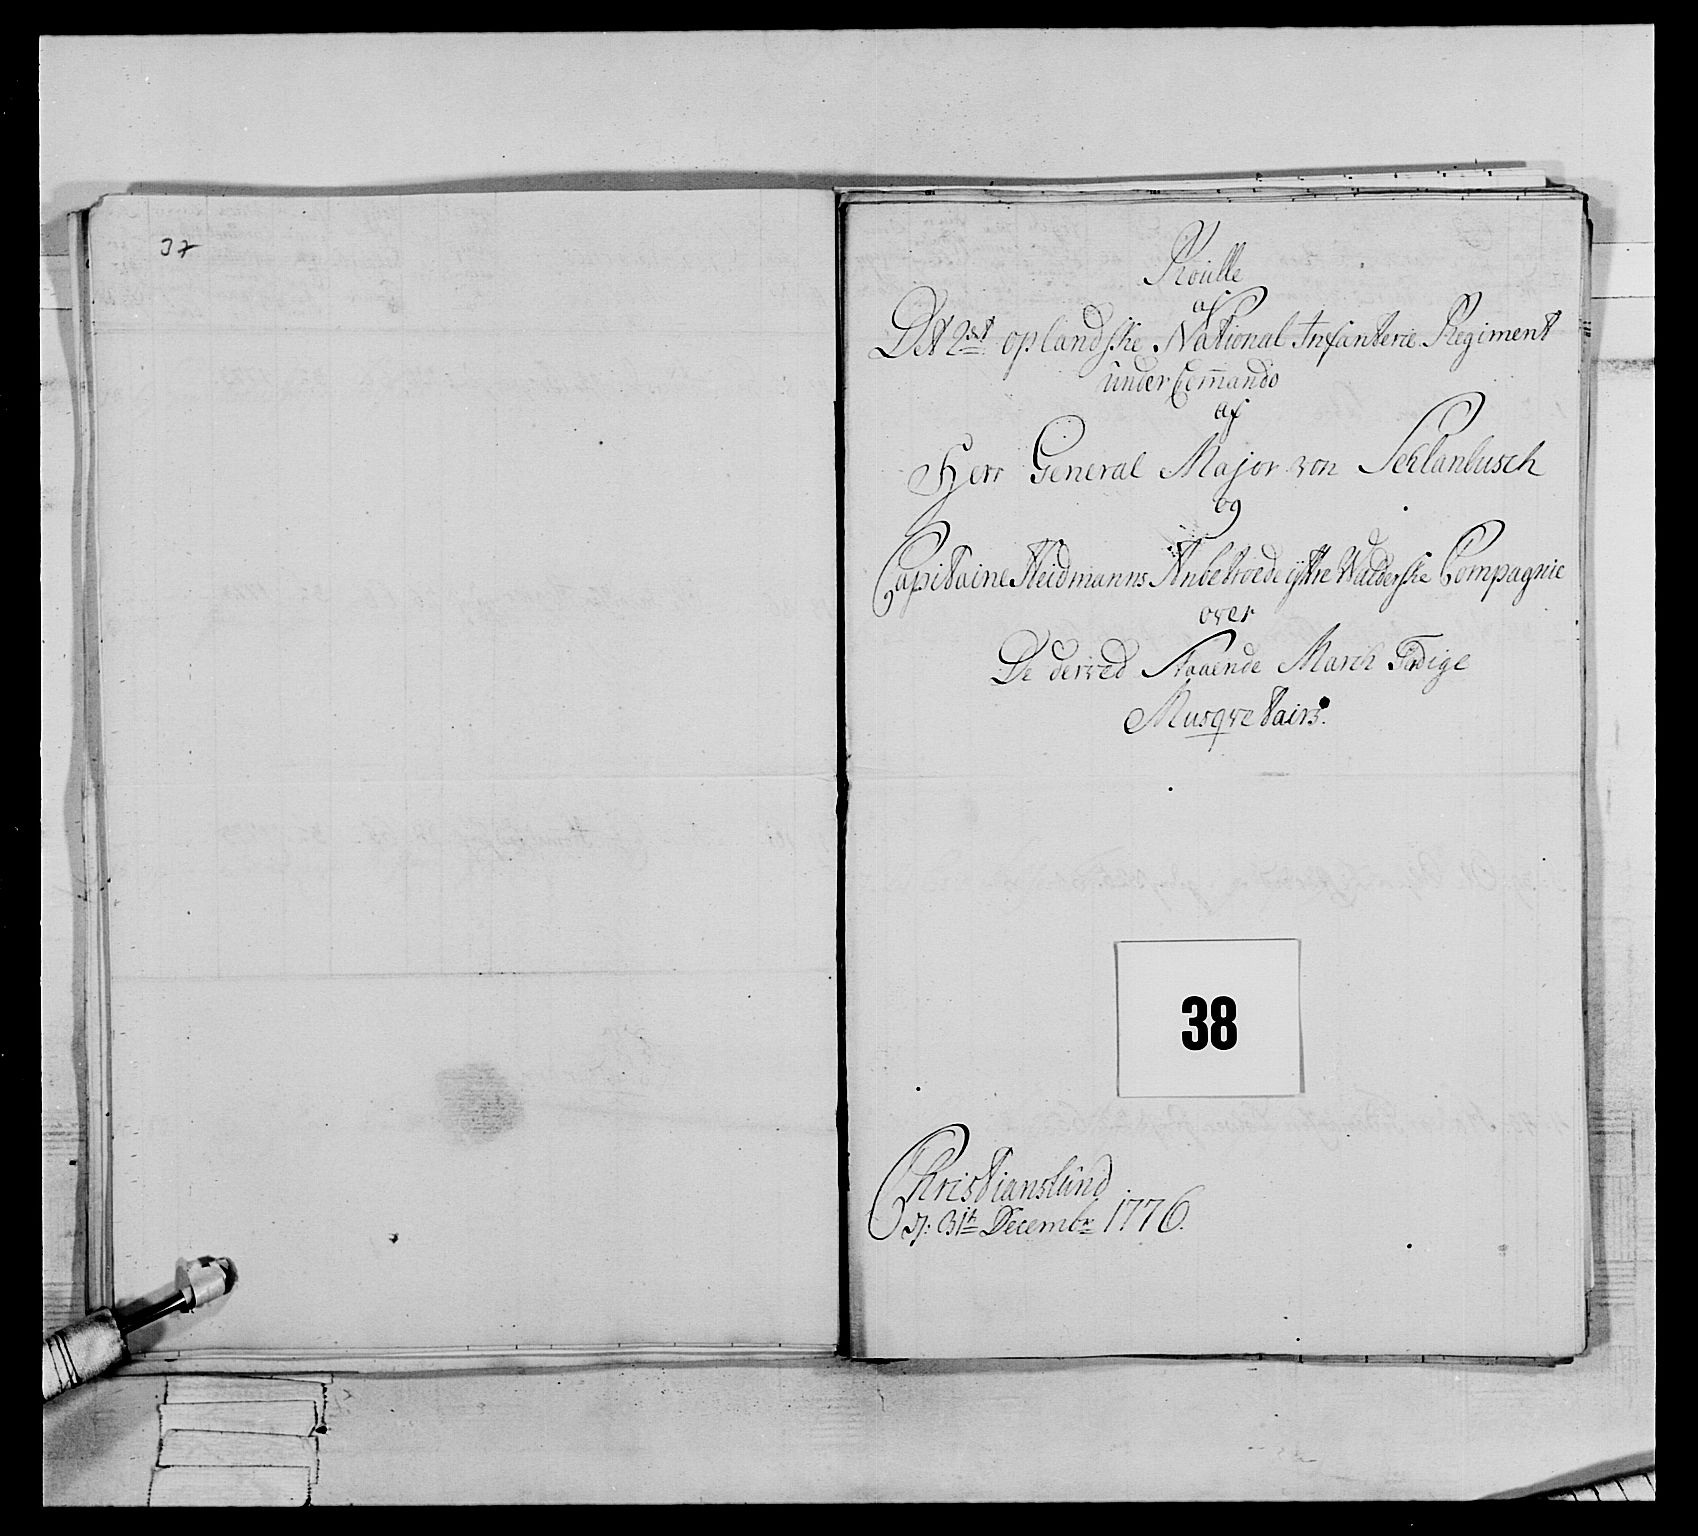 37
Roulle
af
Det 2det oplandske National Infanterie Regiment
under Com̄ando
af
Herr General Major von Schlanbusch
og
Capitaine Heidmanns Anbetroede ijttre Walderske Compagnie
over
De derved Staaende March Færdige
Musqvetairs.
38
Christianslund
d: 31te Decembr 1776.